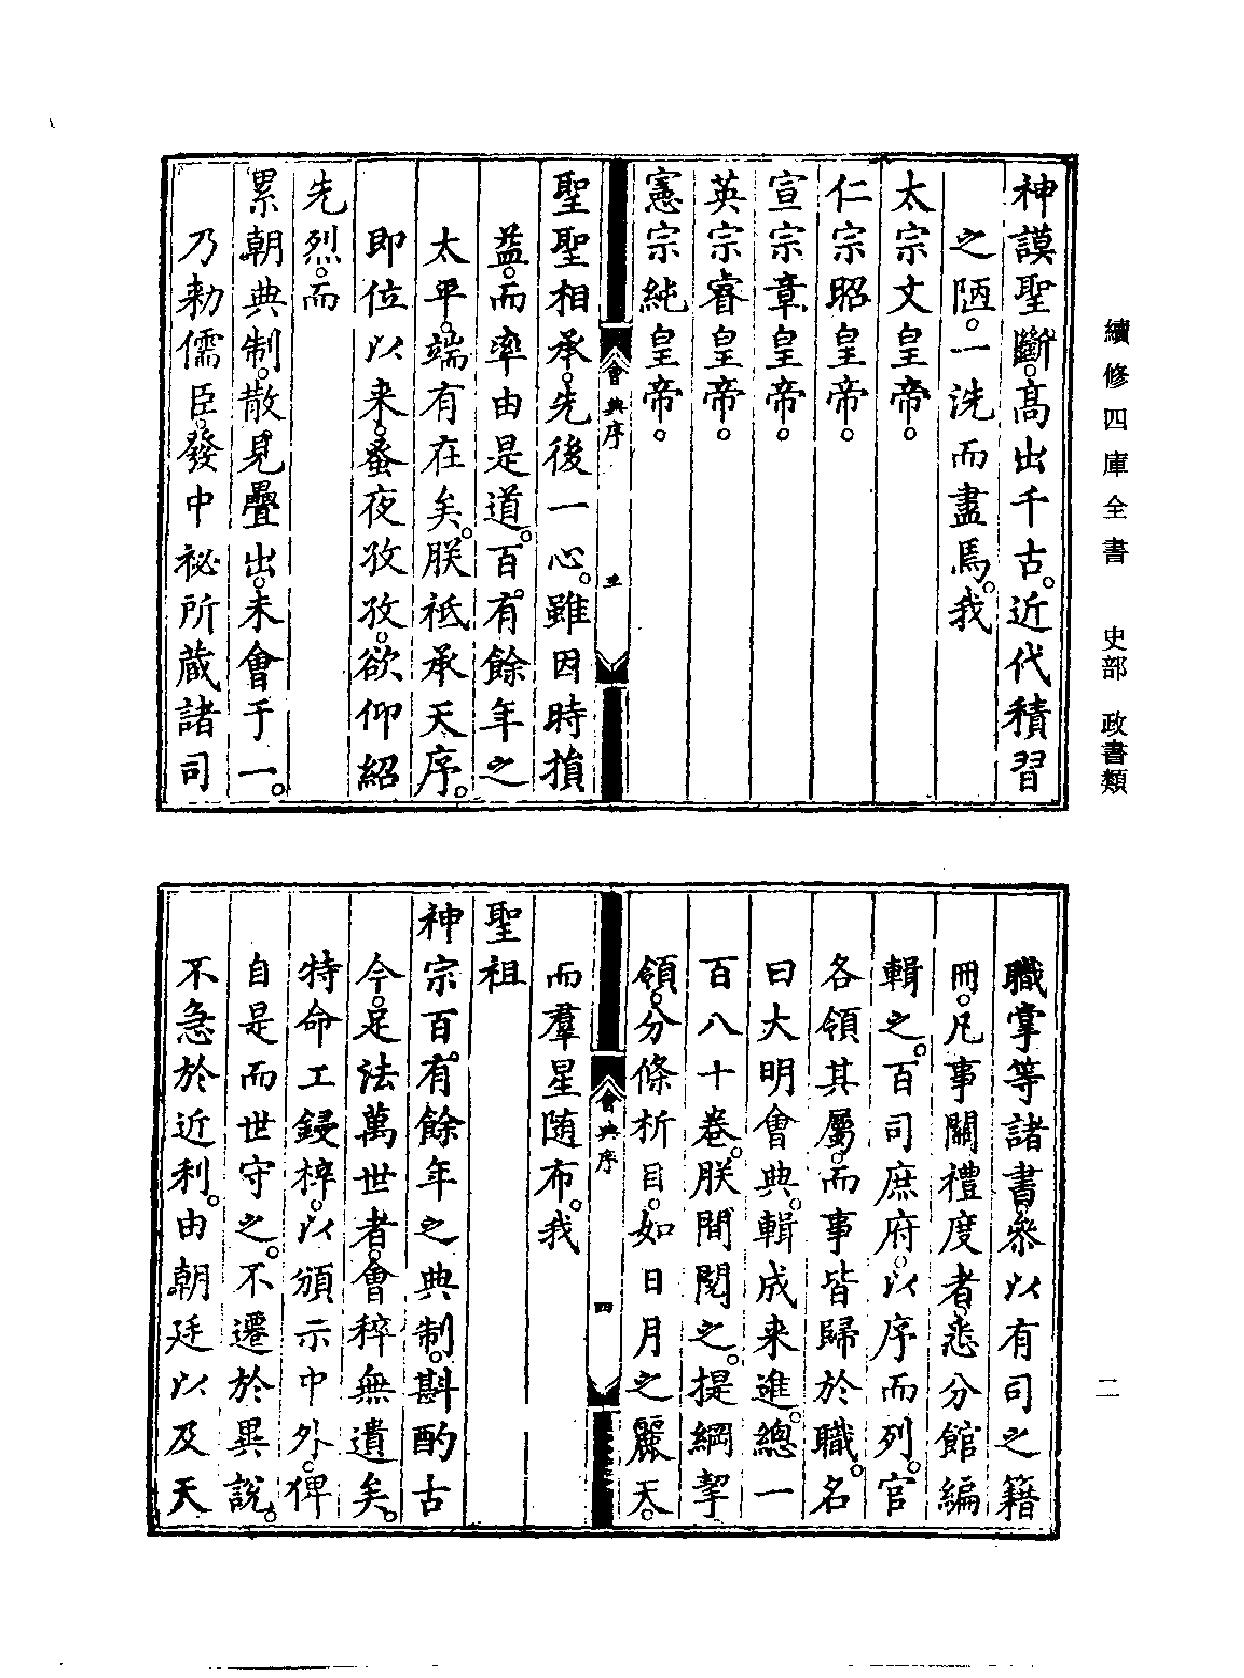 續修四庫全書　史部　政書類
神謨聖斷。高出千古。近代積習
之陋。一洗而盡焉。我
太宗文皇帝。
仁宗昭皇帝。
宣宗章皇帝。
英宗睿皇帝。
憲宗純皇帝。
會典序　三
聖聖相承。先後一心。雖因時損
益。而率由是道。百有餘年之
太平。端有在矣。朕祗承天序。
即位以来。蚤夜孜孜。欲仰紹
先烈。而
累朝典制。散見疊出。未會于一。
乃勅儒臣。發中祕所蔵諸司
職掌等諸書。叅以有司之籍
冊。凡事關禮度者。悉分館編
輯之。百司庶府。以序而列。官
各領其屬。而事皆歸於職。名
曰大明會典。輯成来進。總一
百八十卷。朕間閱之。提綱挈
領。分條析目。如日月之麗天。
會典序　四
而羣星随布。我
聖祖
神宗百有餘年之典制。斟酌古
今。足法萬世者。會稡無遺矣。
特命工鋟梓。以頒示中外。俾
自是而世守之。不遷於異說。
不急於近利。由朝廷以及天
二